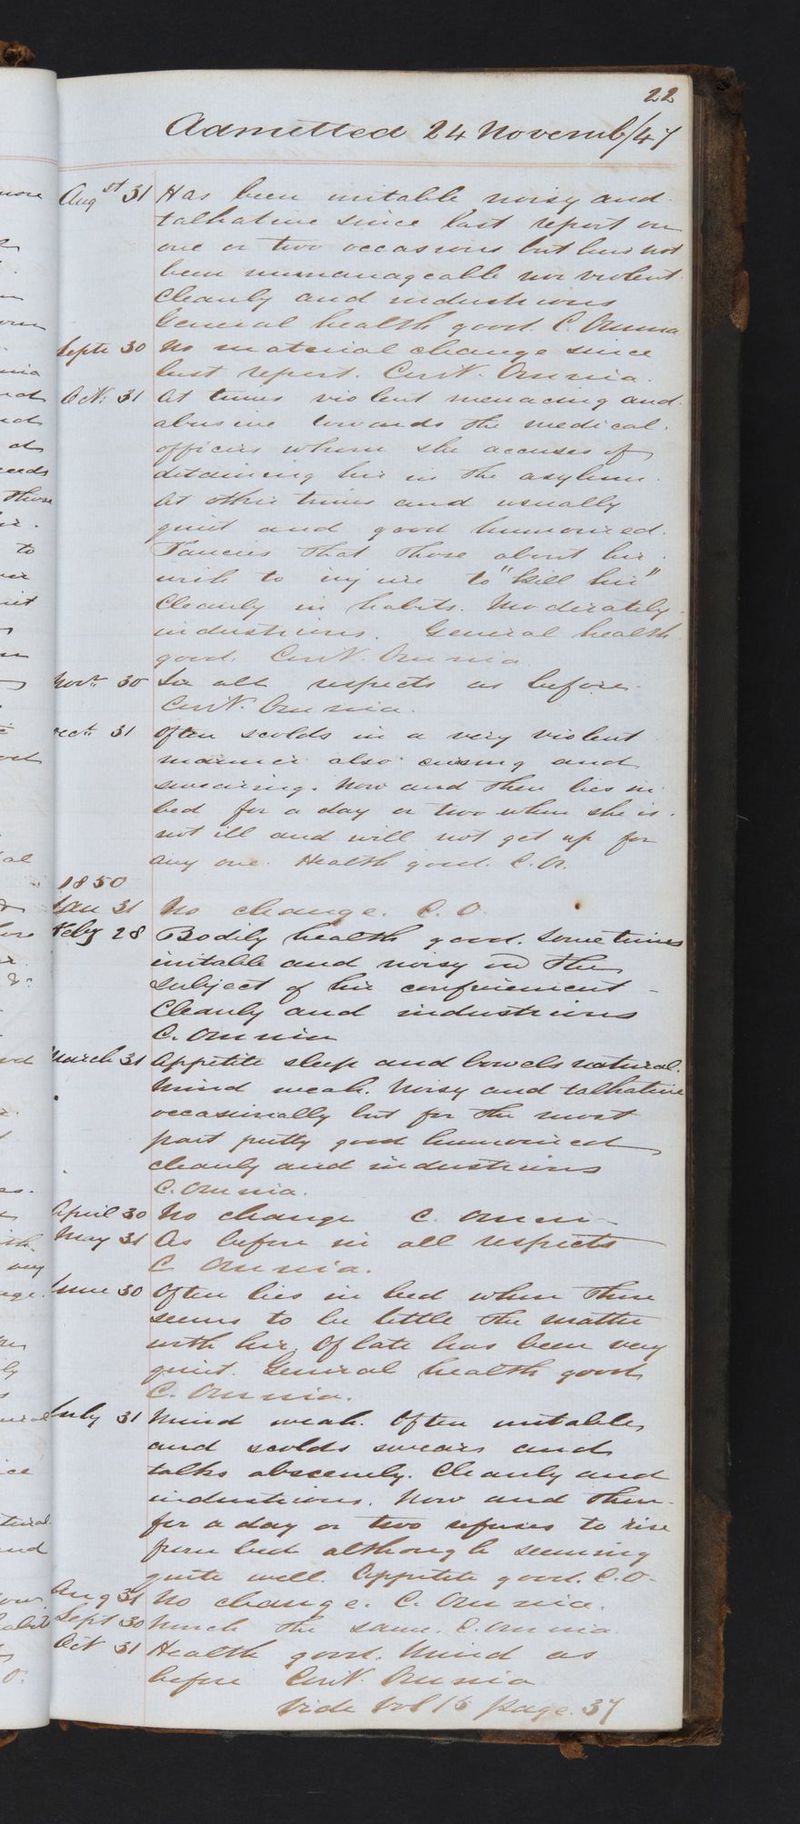 22
Admitted 24 Novemb/47
Augst 31 Has been irritable noisy and
talkative since last report on
one or two occasions but has not
been unmanageable nor violent.
Cleanly and industrious
General health good. C. Omnia
Septr 30 No material change since
last report. Cont. Omnia.
Oct. 31 At times violent menacing and
abusive towards the medical
officers whom she accuses of
detaining her in the asylum.
At other times and usually
quiet and good humoured.
Fancies that those about her
wish to injure to "kill her"
Cleanly in habits. Moderately
industrious. General health
good. Cont. Omnia
Novr 30 In all respects as before.
Cont. Omnia.
Decr 31 Often scolds in a very violent
manner also cursing and
swearing. Now and then lies in
bed for a day or two when she is
not ill and will not get up for
any one. Health good. C. O.
1850
Jan 31 No change. C. O
Feby 28 Bodily health good. Sometimes
irritable and noisy on the
subject of her confinement -
Cleanly and industrious
C. Omnia
March 31 Appetite sleep and bowels natural.
Mind weak. Noisy and talkative
occasionally but for the most
part pretty good humoured
cleanly and industrious
C. Omnia.
April 30 No change C. Omni
May 31 As before in all respects
C Omnia.
June 30 Often lies in bed when there
seems to be little the matter
with her. Of late has been very
quiet. General health good
C. Omnia.
July 31 Mind weak. Often irritable
and scolds swears and
talks obscenely. Cleanly and
industrious. Now and then
for a day or two refuses to rise
from bed although seeming
quite well. Appetite good. C. O.
Aug 31 No change. C. Omnia.
Sept 30 Much the same. C. Omnia
Oct 31 Health good. Mind as
before Cont. Omnia
Vide Vol 15 page. 37